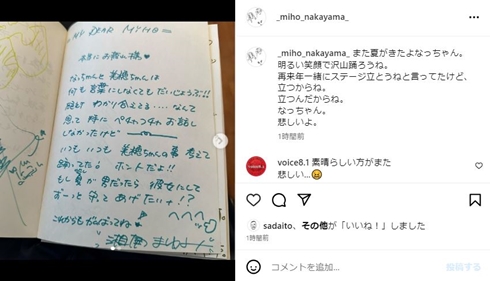 MY DEAR MIHO
本当にお疲れ様
なっちゃんと美穂ちゃんは
何も言葉にしなくてもだいじょうぶ!!
わかり合える・・・なんて
思って 特にペチャクチャお話し
しなかったけど
いつもいつも美穂ちゃんの事考えて
踊ってたら ホントだよ!!
もし 男だったら 彼女にして
ずーっと守ってあげたいッ!?
これからもがんばってネ
_miho_nakayama_
_miho_nakayama_ また夏がきたよなっちゃん。
明るい笑顔で沢山踊ろうね。
再来年一緒にステージ立とうねと言ってたけど、
立つからね。
立つんだからね。
なっちゃん。
悲しいよ。
1時間前
voice8.1 素晴らしい方がまた
悲しい...😖
sadaito、その他が「いいね!」しました
1時間前
コメントを追加...
投稿する